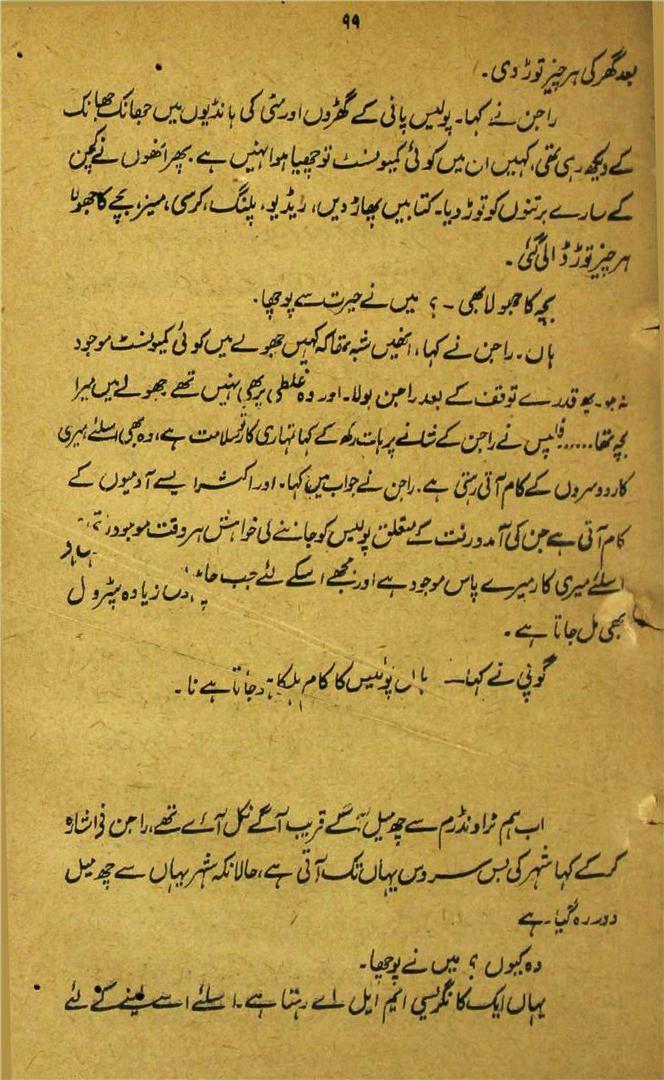 ۹۹
بعد گھر کی ہر چیز توڑ دی۔
راجن نے کہا۔ پولیس پانی کے گھڑوں اور مٹی کی ہانڈیوں میں جھانک جھانک
کے دیکھ رہی تھی، کہیں ان میں کوئی کمیونسٹ تو چھپا ہوا نہیں ہے۔ پھر انھوں نے کچن
کے سارے برتنوں کو توڑ دیا۔ کتابیں پھاڑ دیں، ریڈیو، پلنگ، کرسی، میز، بچے کا جھولا
ہر چیز توڑ ڈالی گئی۔
بچہ کا جھولا بھی ۔ ؟ میں نے حیرت سے پوچھا۔
ہاں۔ راجن نے کہا، انھیں شبہ تھا کہ کہیں جھولے میں کوئی کمیونسٹ موجود
نہ ہو۔ قدرے توقف کے بعد راجن بولا۔ اور وہ غلطی پر بھی نہیں تھے جھولے میں میرا
بچہ تھا...... نے راجن کے شانے پر ہات رکھ کے کہا تمہاری کار تو سلامت ہے، وہ بھی اسلئے میری
کار دوسروں کے کام آتی رہتی ہے۔ راجن نے جواب میں کہا۔ اور اکثر ایسے آدمیوں کے
کام آتی ہے جن کی آمد و رفت کے متعلق پولیس کو جاننے کی خواہش ہر وقت موجود
اسلئے میری کار میرے پاس موجود ہے اور مجھے اسکے لئے جب زیادہ پٹرول
بھی مل جاتا ہے۔
گوپی نے کہا — ہاں پولیس کا کام ہلکا ہو جاتا ہے نا۔
اب ہم ٹراونڈرم سے چھ میل کے قریب آگے نکل آئے تھے، راجن نے اشارہ
کر کے کہا شہر کی بس سروس یہاں تک آتی ہے، حالانکہ شہر یہاں سے چھ میل
دور رہ گیا۔ ہے
وہ کیوں ؟ میں نے پوچھا۔
یہاں ایک کانگریسی ایم ایل اے رہتا ہے۔ اسلئے اسے لینے کے لئے